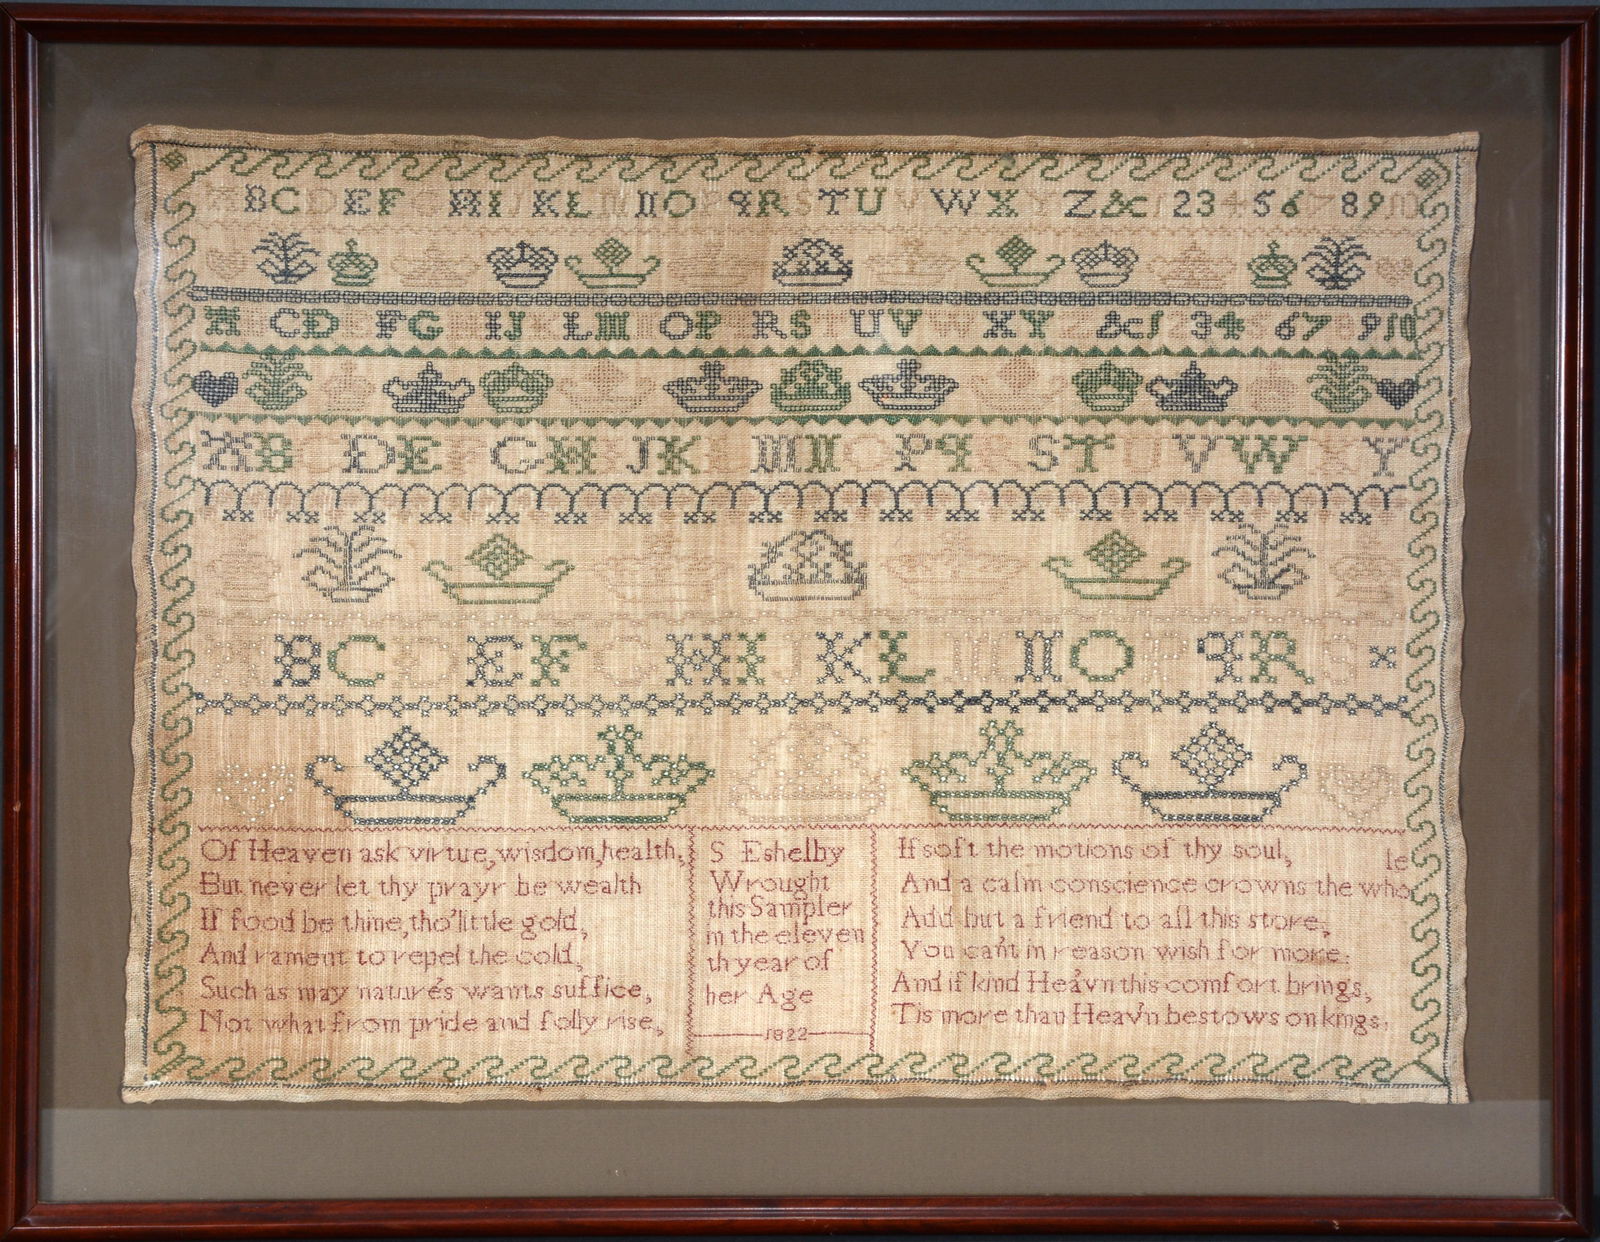 A B C D E F G H I J K L M N O P q R S T U V W X Y Z &c 1 2 3 4 5 6 7 8 9 10
A B C D E F G H I J K L M N O P q R S T U V W X Y Z &c 1 2 3 4 5 6 7 8 9 10
A B C D E F G H I J K L M N O P q R S T U V W X Y
A B C D E F G H I J K L M N O P q R S
Of Heaven ask virtue, wisdom, health,
But never let thy prayr be wealth
If food be thine, tho' little gold,
And rament to repel the cold,
Such as may nature's wants suffice,
Not what from pride and folly rise,
S Eshelby
Wrought
this Sampler
in the eleven
th year of
her Age
1822
If soft the motions of thy soul,
le
And a calm conscience crowns the who
Add but a friend to all this store,
You can't in reason wish for more:
And if kind Hea'vn this comfort brings,
Tis more than Heav'n bestows on kings.